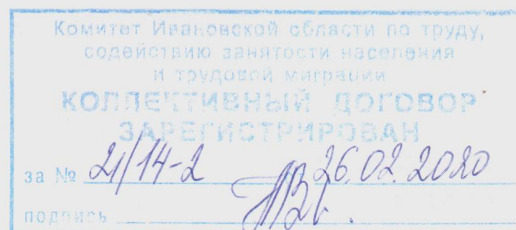 Комитет Ивановской области по труду,
содействию занятости населения
и трудовой миграции
КОЛЛЕКТИВНЫЙ ДОГОВОР
ЗАРЕГИСТРИРОВАН
за № 21/14-2 26.02.2020
подпись